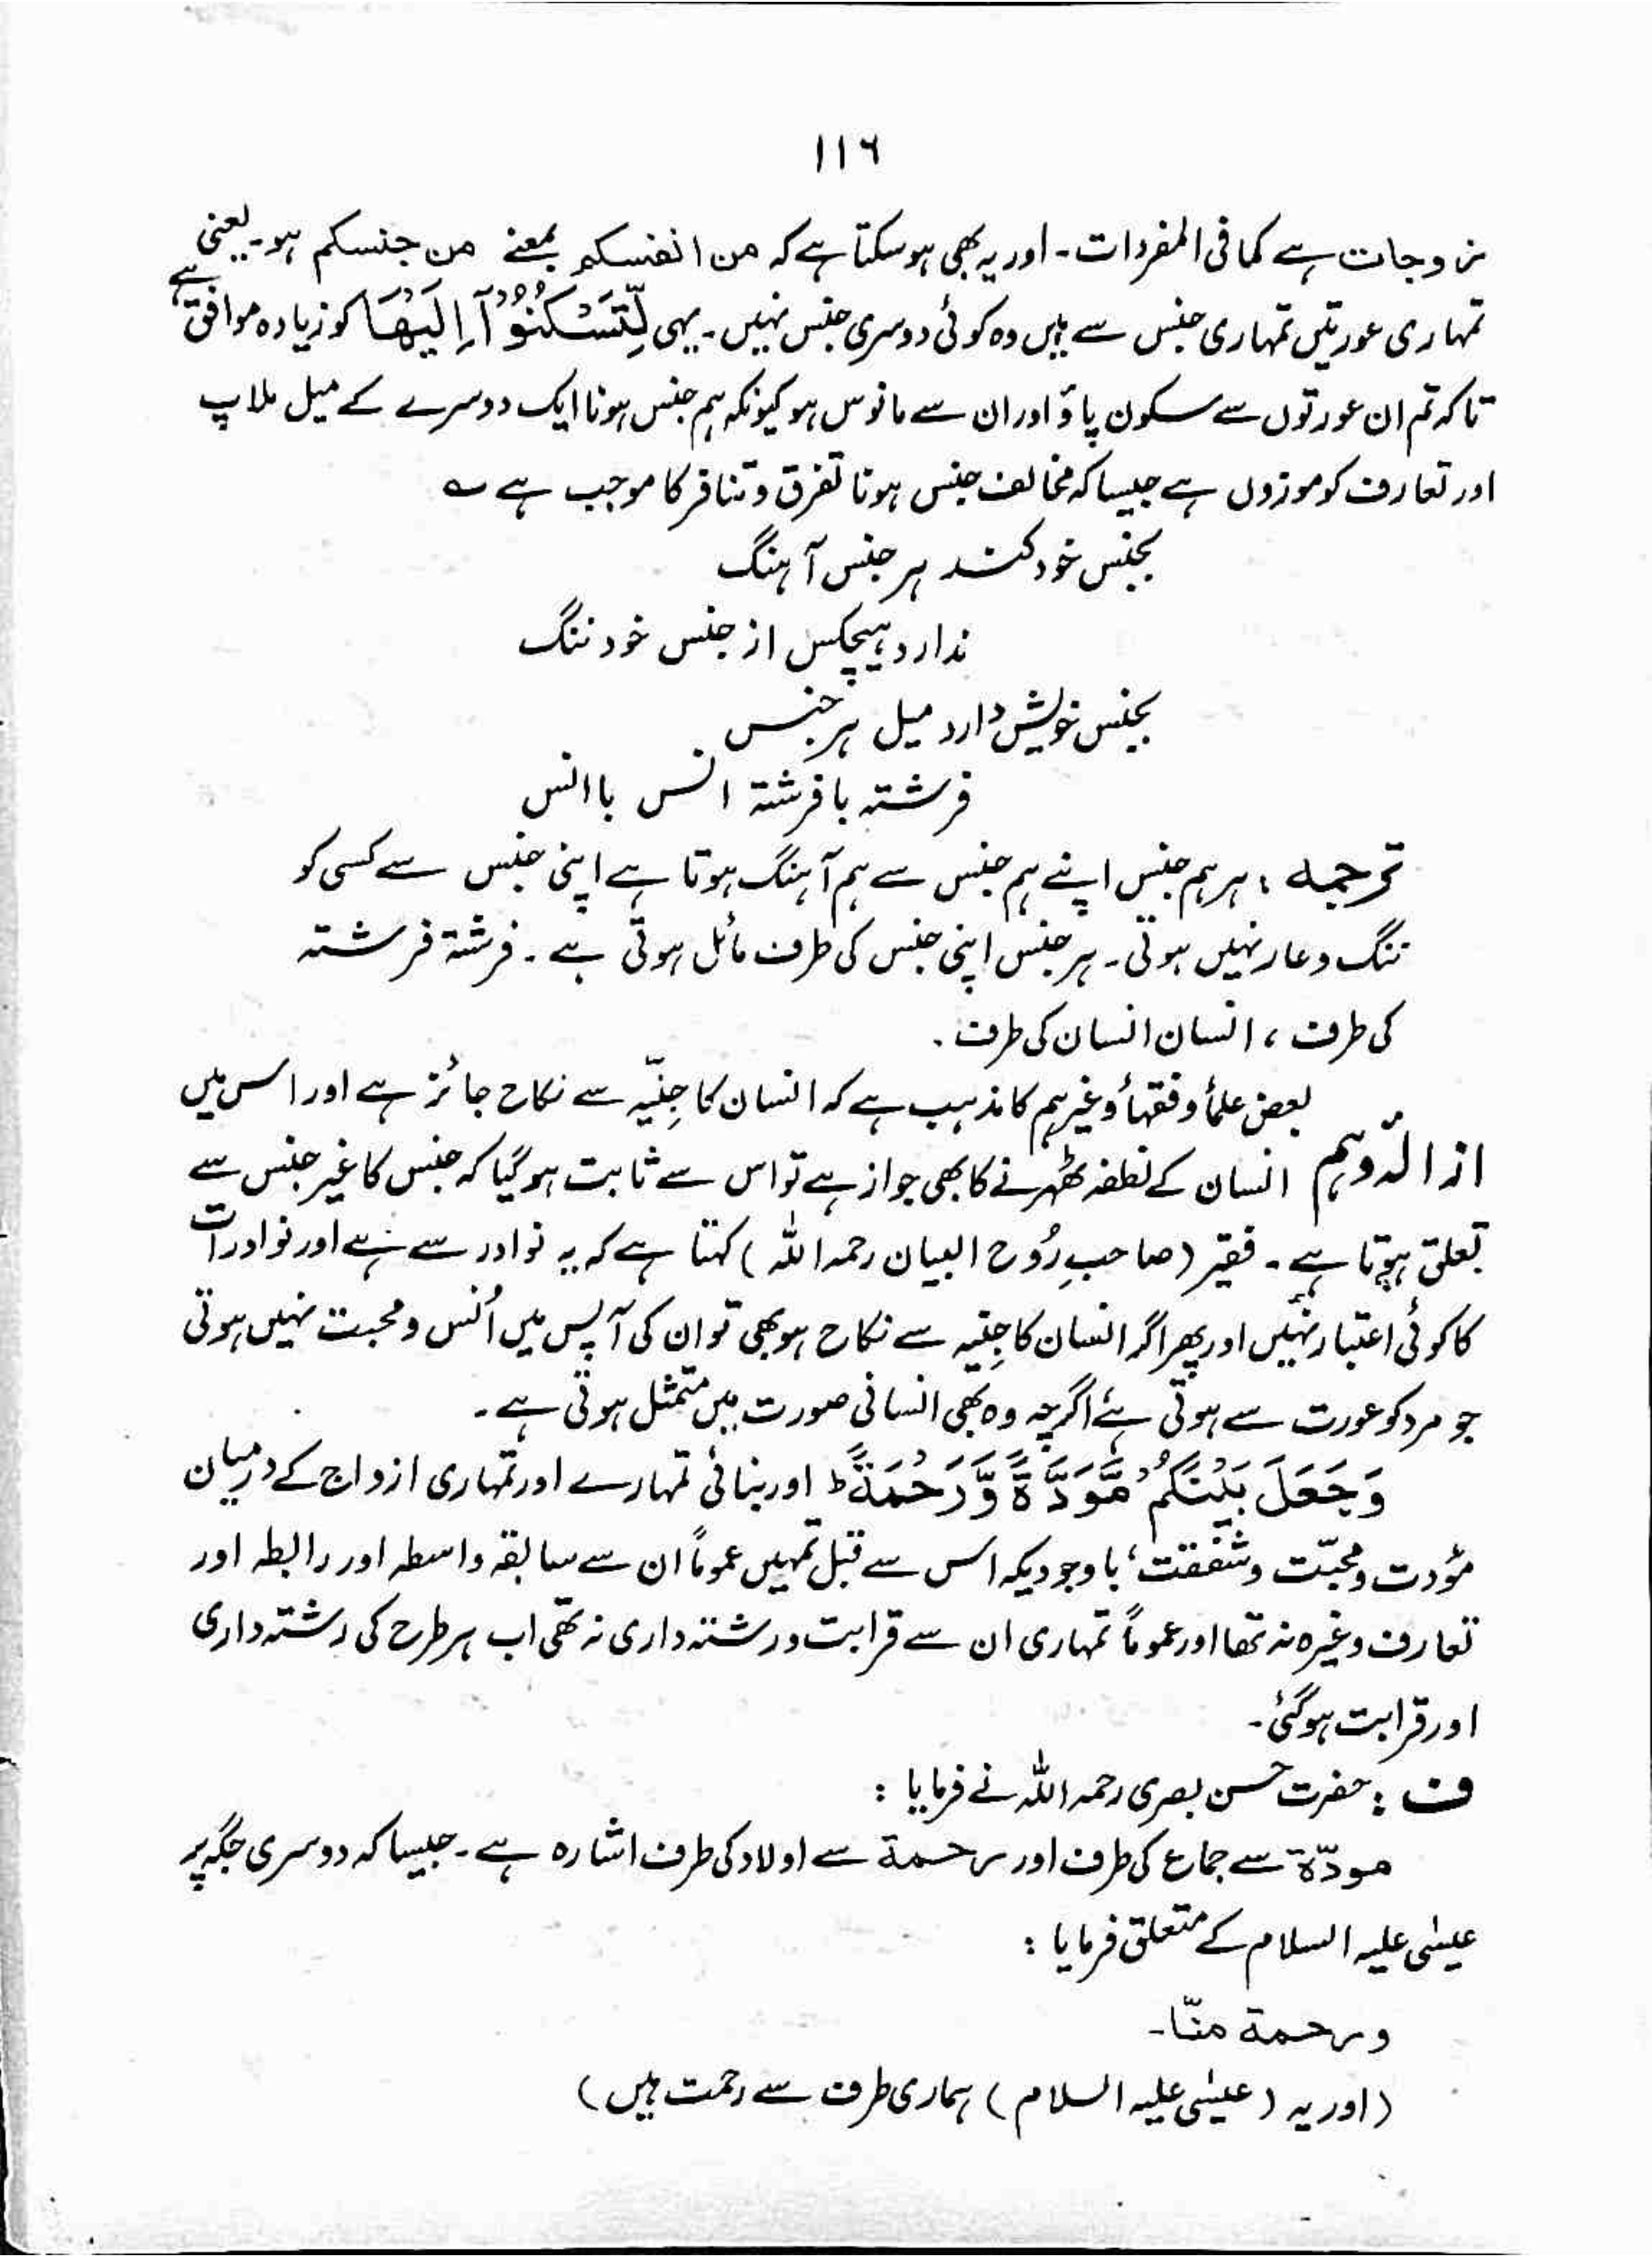 ۱۱۶
زوجات ہے کما فی المفردات ۔ اور یہ بھی ہوسکتا ہے کہ من انفسکم بمعنے من جنسکم ہو۔ یعنی
تمہاری عورتیں تمہاری جنس سے ہیں وہ کوئی دوسری جنس نہیں ۔ یہی لِّتَسْكُنُوْٓا اِلَيْهَا کو زیادہ موافق ہے
تاکہ تم ان عورتوں سے سکون پاؤ اور ان سے مانوس ہو کیونکہ ہم جنس ہونا ایک دوسرے کے میل ملاپ
اور تعارف کو موزوں ہے جیسا کہ مخالف جنس ہونا تفرق و تنافر کا موجب ہے ؎
بجنس خود کند ہر جنس آہنگ
ندارد ہیچکس از جنس خود ننگ
بجنس خویش دارد میل ہر جنس
فرشتہ با فرشتہ انس با انس
ترجمہ : ہر ہم جنس اپنے ہم جنس سے ہم آہنگ ہوتا ہے اپنی جنس سے کسی کو
ننگ و عار نہیں ہوتی ۔ ہر جنس اپنی جنس کی طرف مائل ہوتی ہے ۔ فرشتہ فرشتہ
کی طرف ، انسان انسان کی طرف ۔
بعض علمأ و فقہأ وغیرہم کا مذہب ہے کہ انسان کا جِنّیہ سے نکاح جائز ہے اور اس میں
ازالۂ وہم انسان کے نطفہ ٹھہرنے کا بھی جواز ہے تو اس سے ثابت ہوگیا کہ جنس کا غیر جنس سے
تعلق ہوتا ہے ۔ فقیر (صاحبِ رُوح البیان رحمہ اللہ) کہتا ہے کہ یہ نوادر سے ہے اور نوادرات
کا کوئی اعتبار نہیں اور پھر اگر انسان کا جِنّیہ سے نکاح ہو بھی تو ان کی آپس میں اُنس و محبت نہیں ہوتی
جو مرد کو عورت سے ہوتی ہے اگرچہ وہ بھی انسانی صورت میں متمثل ہوتی ہے ۔
وَجَعَلَ بَيْنَكُمْ مَّوَدَّةً وَّرَحْمَةً ط اور بنائی تمہارے اور تمہاری ازواج کے درمیان
مؤدت و محبّت و شفقت ، باوجودیکہ اس سے قبل تمہیں عموماً ان سے سابقہ واسطہ اور رابطہ اور
تعارف وغیرہ نہ تھا اور عموماً تمہاری ان سے قرابت و رشتہ داری نہ تھی اب ہر طرح کی رشتہ داری
اور قرابت ہوگئی ۔
ف : حضرت حسن بصری رحمہ اللہ نے فرمایا :
مودّة سے جماع کی طرف اور رحمة سے اولاد کی طرف اشارہ ہے ۔ جیسا کہ دوسری جگہ پر
عیسٰی علیہ السلام کے متعلق فرمایا :
ورحمة منّا۔
(اور یہ (عیسٰی علیہ السلام) ہماری طرف سے رحمت ہیں)